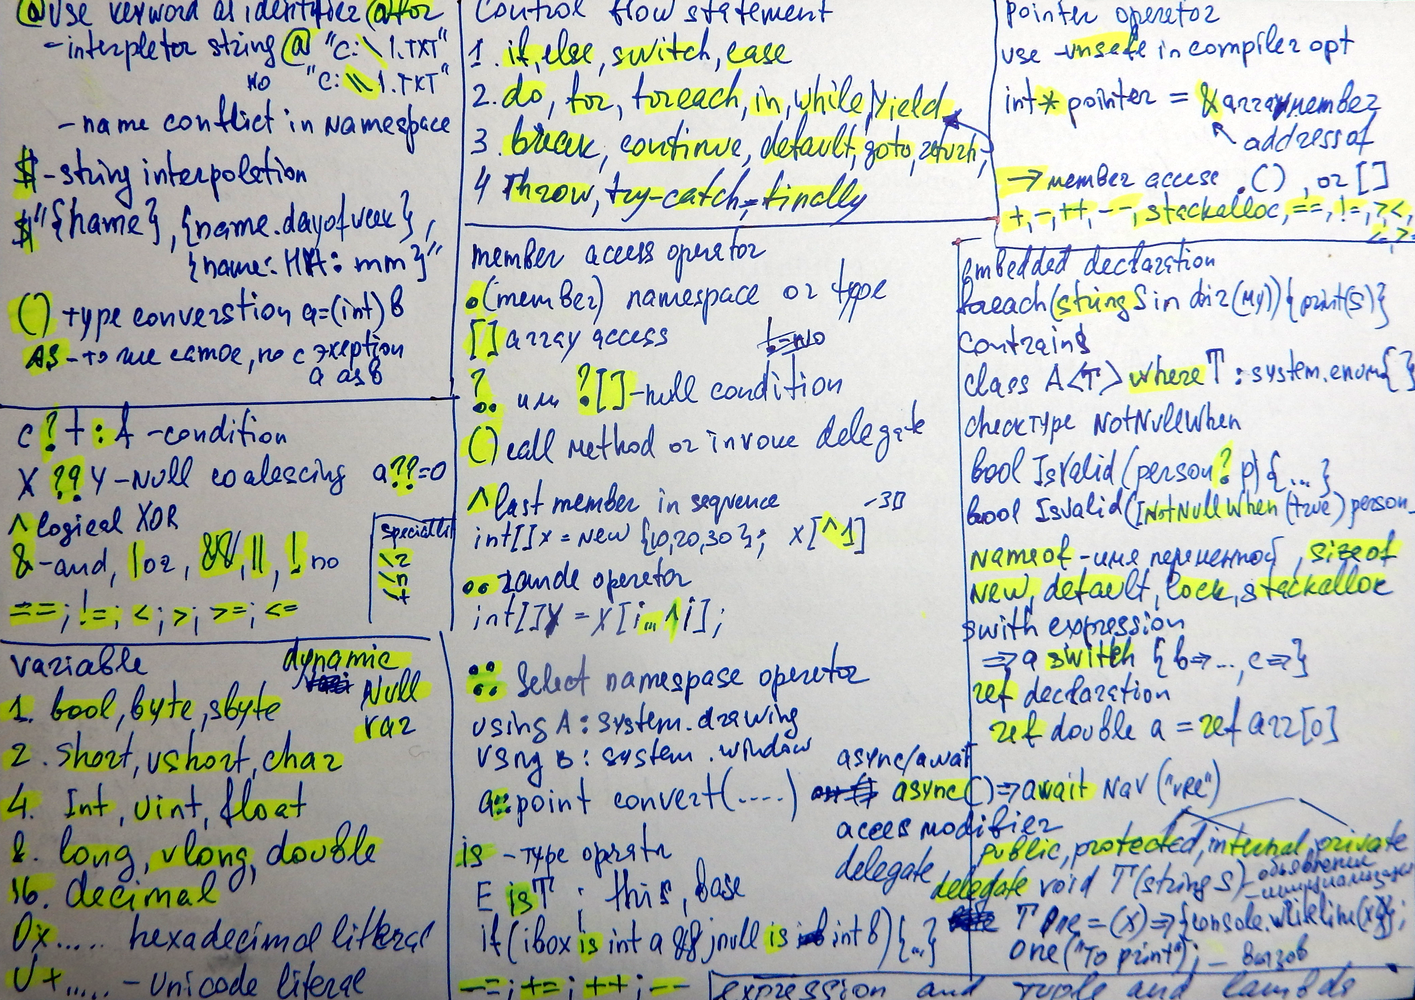 @ use keyword as identifier @for
- interpletor string @ "c:\1.TXT"
NO "c:\\1.TXT"
- name conflict in Namespace
$ - string interpolation
$"{name}, {name.dayofweek},
{name: HH: mm}"
() type converstion a=(int)b
AS - то же самое, но с exeption
a as b
c ? t : A - condition
X ?? Y - Null coalescing a??=0
^ logical XOR
& - and, | or, &&, ||, ! no
==; !=; <; >; >=; <=
\r
\n
\t
variable dynamic
Null
var
1. bool, byte, sbyte
2. short, ushort, char
4. Int, uint, float
8. long, ulong, double
16. decimal
0x..... hexadecimal litteral
U+..... - Unicode literal
Control flow statement
1. if, else, switch, case
2. do, for, foreach, in, while, yield
3. break, continue, default, goto, return,
4 Throw, try-catch, finally
member access operator
.(member) namespace or type
[] array access
?. или ?[] - null condition
() call method or invoke delegate
^ last member in sequence
int[]x = new {10,20,30}; x[^1] -30
.. range operator
int[]Y = X[i..^i];
:: Select namespase operetor
using A: system.drawing
using B: system.window
a::point convert(....)
is - type operatr
E is T : this, base
if (ibox is int a && jnull is int b) {...}
-=; +=; ++; --
pointer operetor
use -unsafe in compiler opt
int* pointer = &arraymember
address of
-> member access .(), or []
+, -, ++, --, stackalloc, ==, !=, ><,
<=>=
Embedded declaration
foreach(string S in dir(my)) {print(s)}
contrains
class A<T> where T : system.enum{}
checktype NotNullWhen
bool IsValid (person? p) {...}
bool IsValid([NotNullWhen (true) person
nameof - имя переменной, sizeof
new, default, lock, stackalloc
swith expression
=> a switch {b=>..., c=>}
ref declaration
ref double a = ref arr[0]
async/await
async()=>await Nav ("vRe")
acces modifier
public, protected, internal, private
delegate
delegate void T(string s) - объявление
инициализация
T One = (x)=>{console.writeline(x)};
one("To print"); - вызов
expression and tuple and lambda